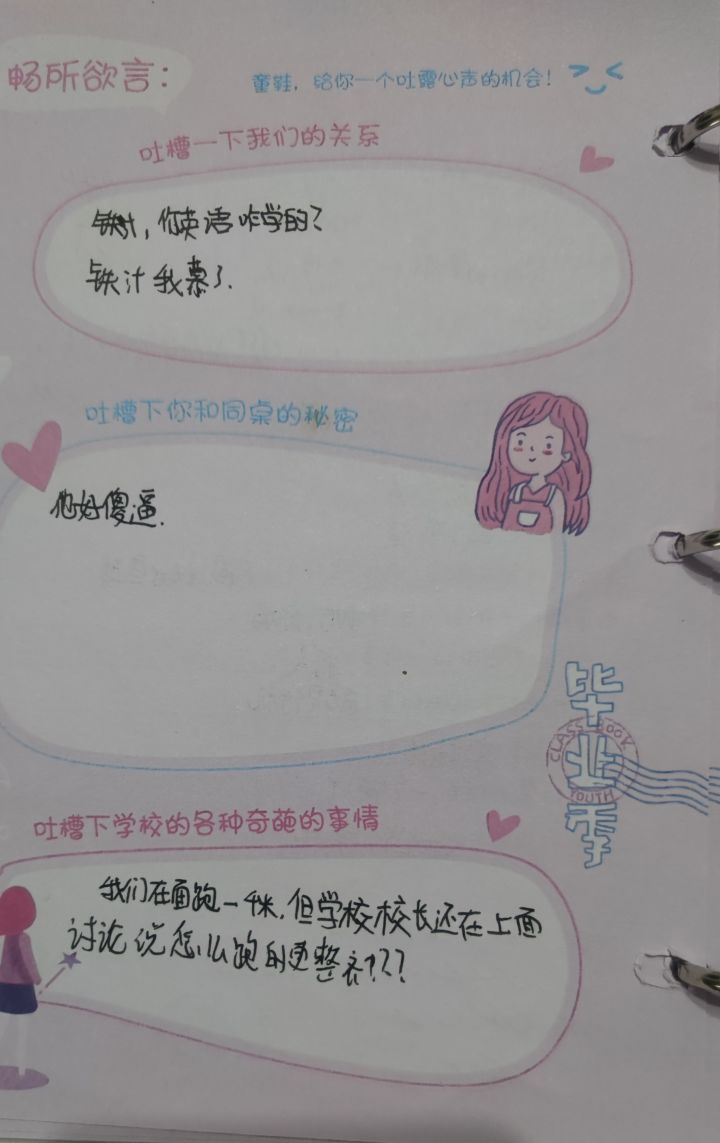 畅所欲言：
童鞋，给你一个吐露心声的机会！
吐槽一下我们的关系
铁汁，你英语咋学的？
铁汁我慕了.
吐槽下你和同桌的秘密
他好傻逼.
毕业季
CLASS BOOK
YOUTH
吐槽下学校的各种奇葩的事情
我们在面跑一千米，但学校校长还在上面
讨论说怎么跑的更整齐???